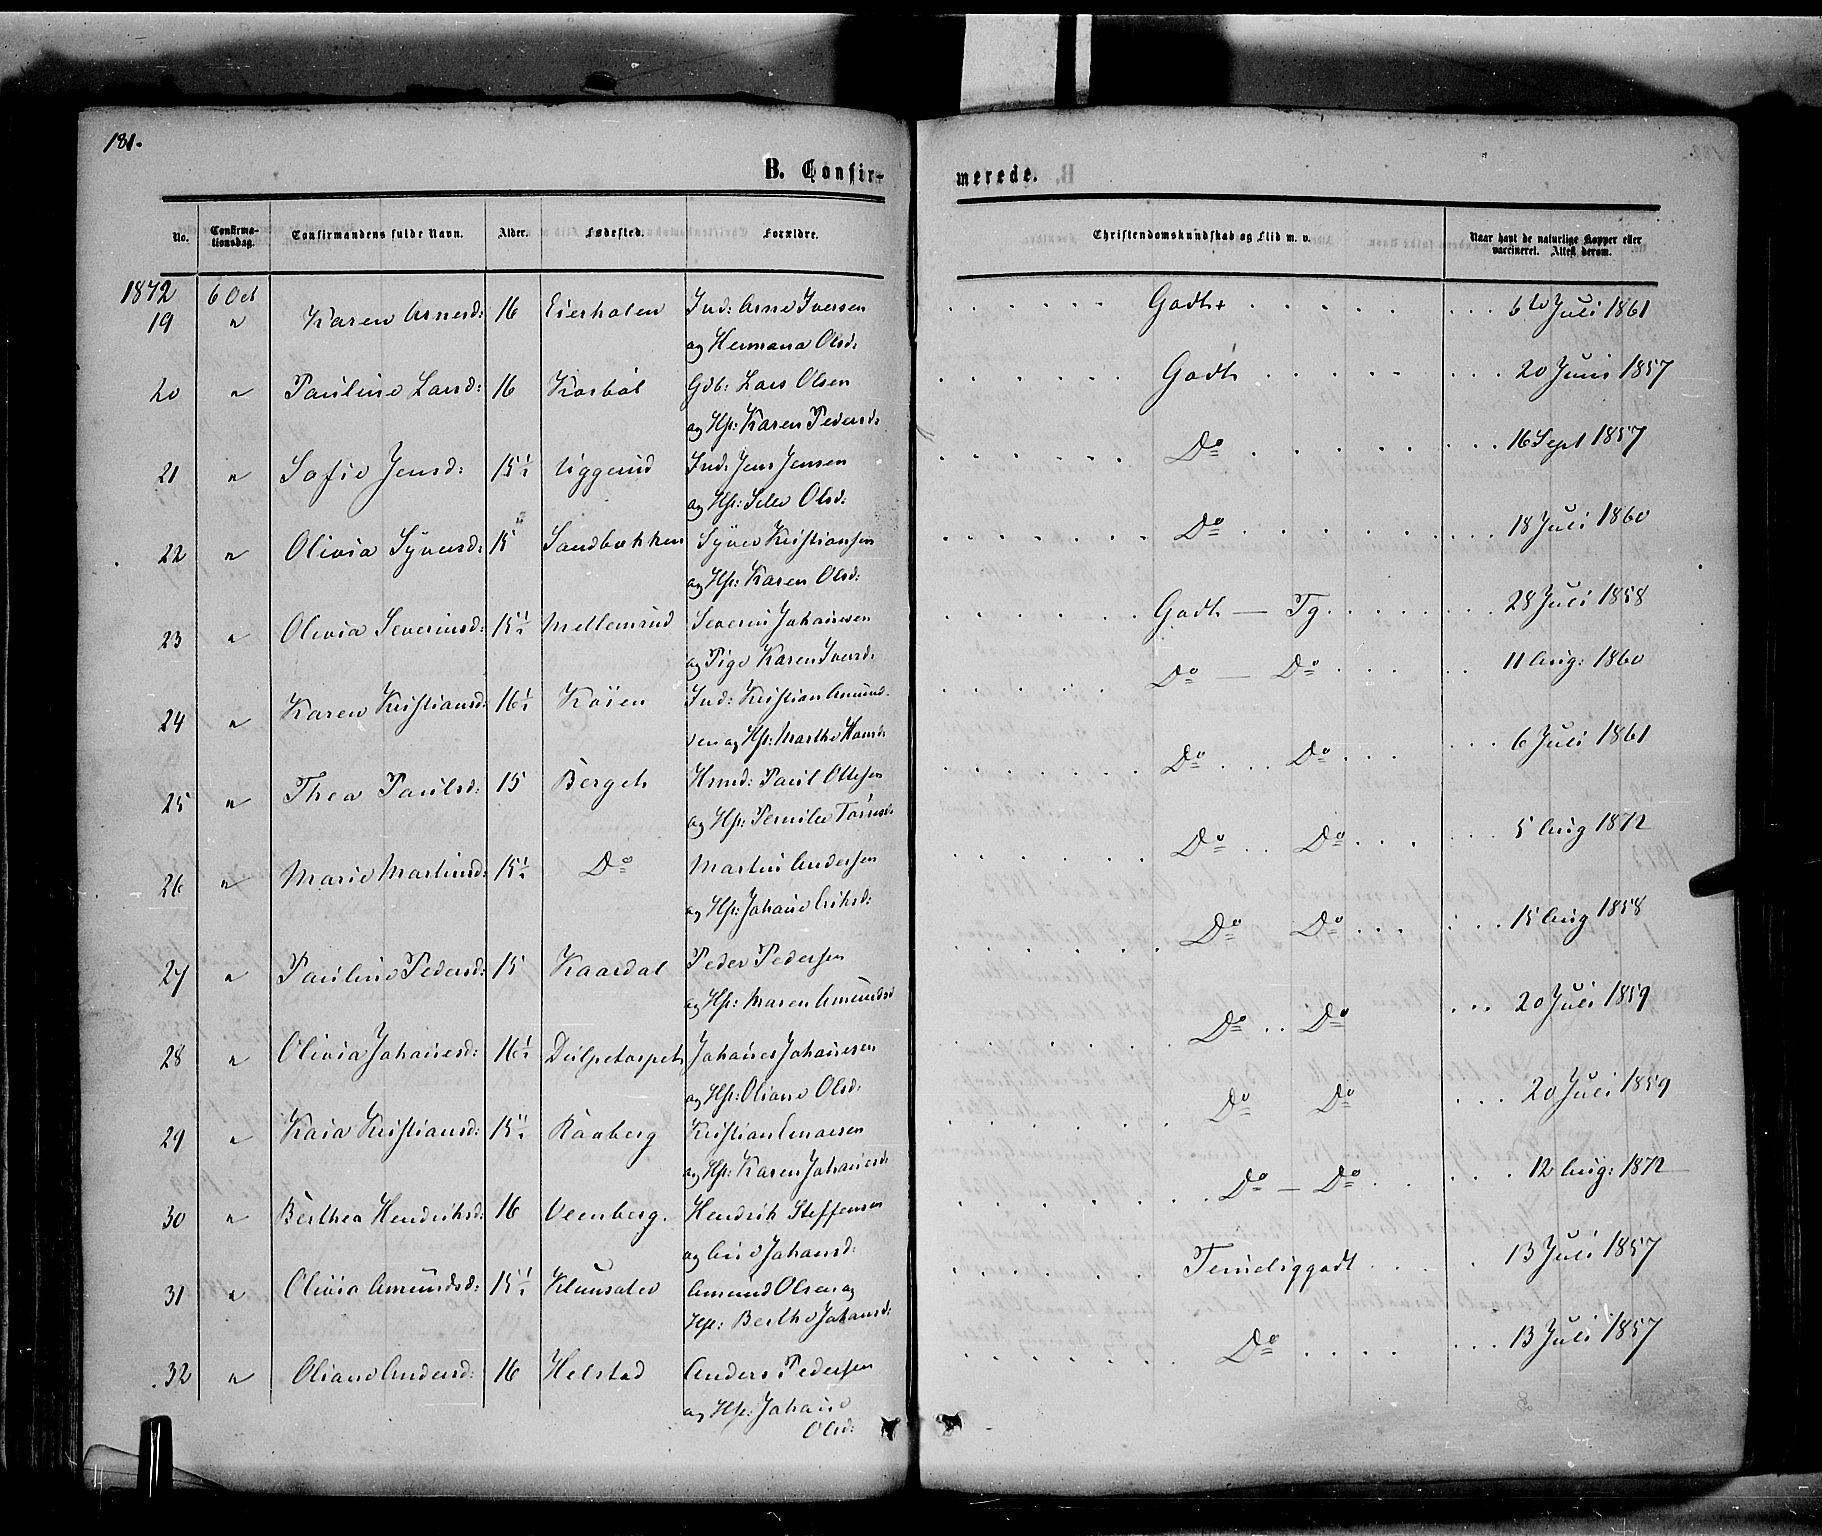 181.
B. Confir-
merede.
No.
Confirma-
tionsdag.
Confirmandens fulde Navn.
Alder.
Fødested.
Forældre.
Christendomskundskab og Flid m. v.
Naar havt de naturlige Kopper eller
vaccineret. Attest derom.
1872 6 Oct
19 " Karen Arnesd: 16 Eierholen Ind: Arne Iversen Godt 6te Juli 1861
og Hermana Olsd:
20 " Pauline Larsd: 16 Korbøl Gdb: Lars Olsen Godt 20 Juni 1857
og Hst: Karen Pedersd:
21 " Sofie Jensd: 15½ Uggerud Ind: Jens Jensen Do 16 Sept 1857
og Hst: Olsd:
22 " Olivia Syversd: 15 Sandbækken Syver Kristiansen Do 18 Juli 1860
og Hst: Karen Olsd:
23 " Olivia Severinsd: 15½ Mellemrud Severin Johannesen Godt — Tg. 28 Juli 1858
og Pige Karen Iversd:
24 " Karen Kristiansd: 16½ Køien Ind: Kristian Amund- Do — Do 11 Aug: 1860
sen og Hst: Marthe Hansd:
25 " Thea Paulsd: 15 Berget Hmd: Paul Ottesen Do Do 6 Juli 1861
og Hst: Pernille
26 " Marie Martinsd: 15½ Do Martin Andersen Do Do 5 Aug 1872
og Hst: Johanne Eriksd:
27 " Pauline Pedersd: 15 Kaardal Peder Pedersen Do Do 15 Aug 1858
og Hst: Maren Amundsd
28 " Olivia Johannesd: 16½ Johannes Johannesen Do Do 20 Juli 1859
og Hst: Oliane Olsd:
29 " Kaia Kristiansd: 15½ Raaberg Kristian Enersen Do Do 20 Juli 1859
og Hst: Karen Johannesd:
30 " Berthea Hendriksd: 16 Veenberg. Hendrik Steffensen Do — Do 12 Aug: 1872
og Johansd:
31 " Olivia Amundsd: 15½ Amund Olsen og Temeliggodt 13 Juli 1857
Hst: Berthe Johansd:
32 " Oliane Andersd: 16 Helstad Anders Pedersen Do 13 Juli 1857
og Hst: Johanne
Olsd: